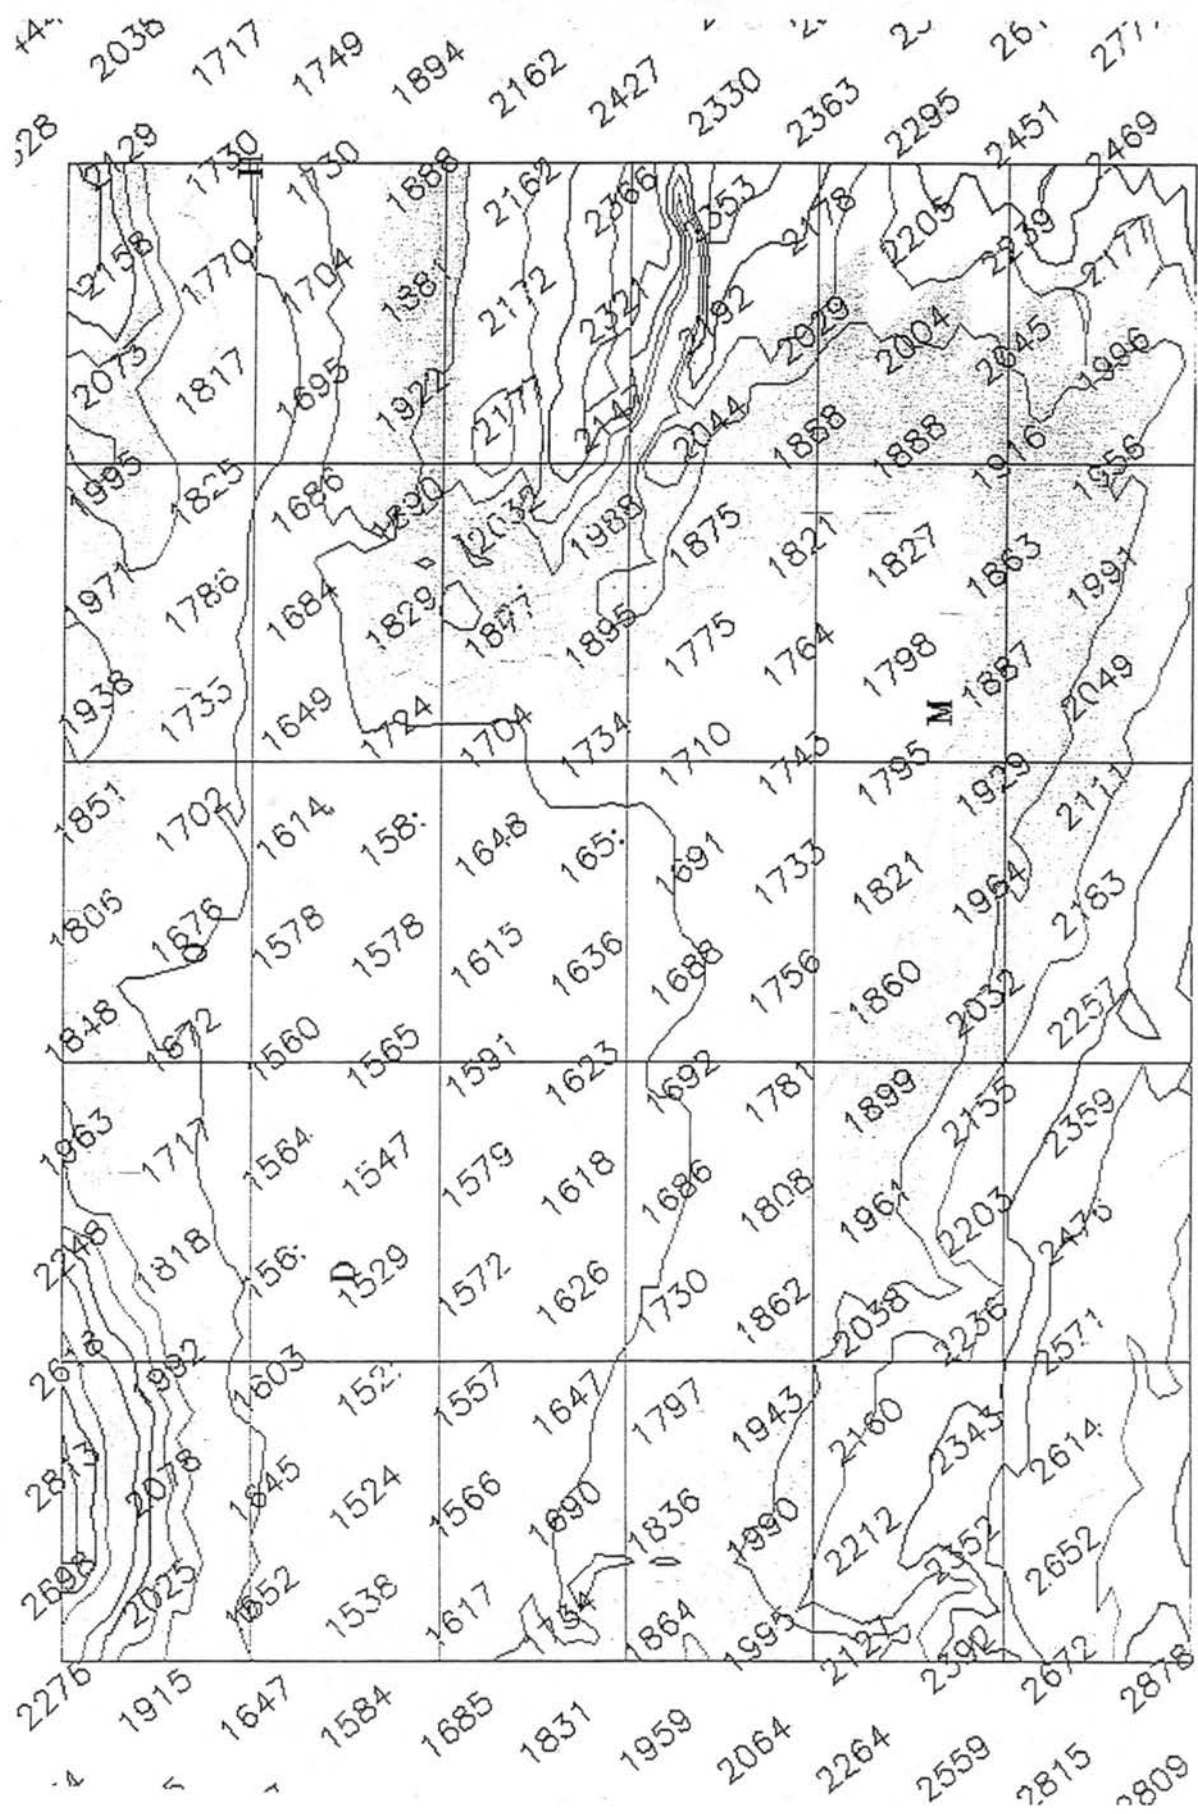 2038 1717 1749 1894 2162 2427 2330 2363 2295 2451 2469
2129 1730 1730 1888 2162 2366 2178 2205 2239 2177
H
2158 1770 1704 1881 2172 2321 2029 2004 2045 1996
2073 1817 1695 1922 2147 2044 1888 1916
1995 1825 1686 1890 2032 1988 1875 1821 1827 1863 1991
1971 1786 1684 1829 1895 1775 1764 1798 1887 2049
1938 1735 1649 1724 1704 1734 1710 1743 1795 1929 2111
M
1851 1702 1614 158: 1648 165: 1691 1733 1821 1964 2183
1806 1676 1578 1578 1615 1636 1688 1756 1860 2032 2257
O
1848 1672 1560 1565 1591 1623 1692 1781 1899 2155 2359
1963 1717 1564 1547 1579 1618 1686 1808 1961 2203 2475
2248 1818 156: 1529 1572 1626 1730 1862 2038 2236 2571
D
1992 1603 152: 1557 1647 1797 1943 2160 2343 2614
2813 2078 1645 1524 1566 1690 1836 1990 2212 2352 2652
2698 2025 1652 1538 1617 1734 1864 1995 2127 2392 2672 2878
2276 1915 1647 1584 1685 1831 1959 2064 2264 2559 2815 2809